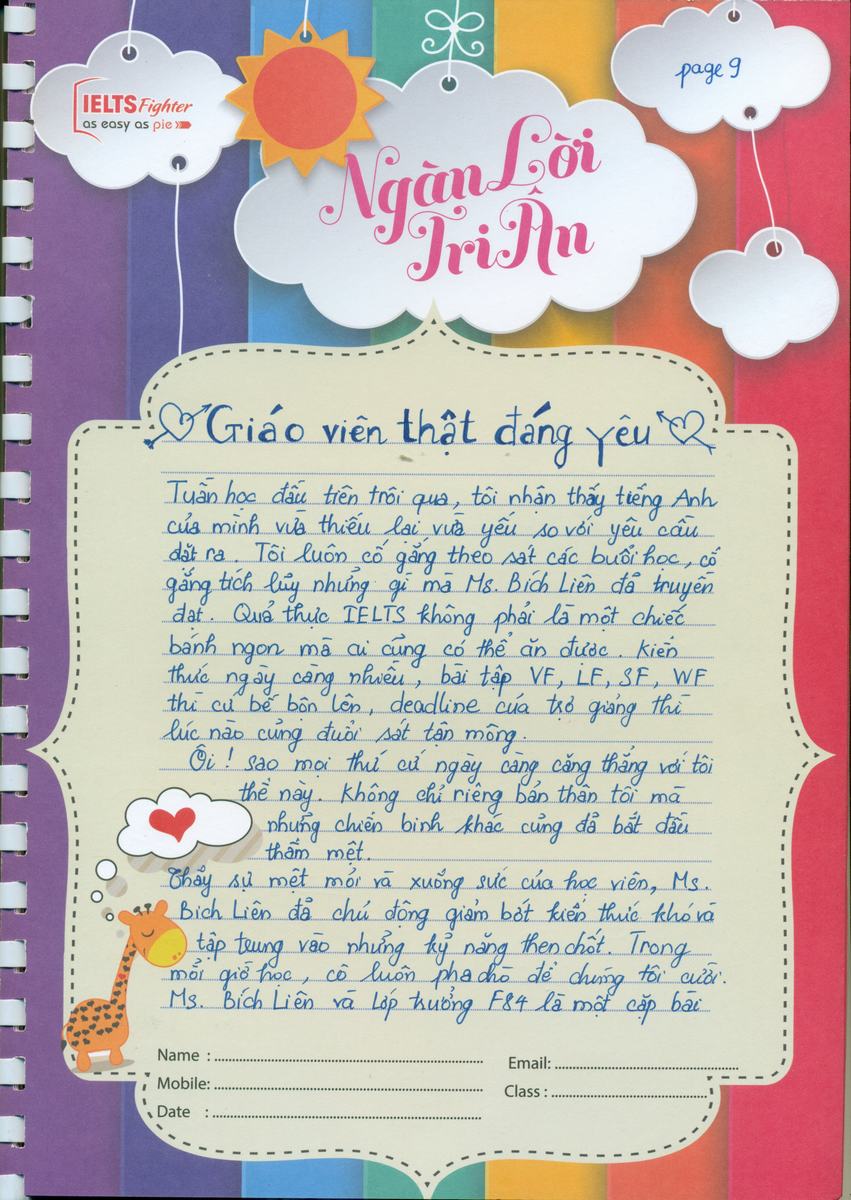 IELTS Fighter
as easy as pie
page 9
Ngàn Lời
Tri Ân
Giáo viên thật đáng yêu
Tuần học đầu tiên trôi qua, tôi nhận thấy tiếng Anh
của mình vừa thiếu lại vừa yếu so với yêu cầu
đặt ra. Tôi luôn cố gắng theo sát các buổi học, cố
gắng tích lũy những gì mà Ms. Bích Liên đã truyền
đạt. Quả thực IELTS không phải là một chiếc
bánh ngon mà ai cũng có thể ăn được. Kiến
thức ngày càng nhiều, bài tập VF, LF, SF, WF
thì cứ bề bộn lên, deadline của trợ giảng thì
lúc nào cũng đuổi sát tận mông.
Ôi! sao mọi thứ cứ ngày càng căng thẳng với tôi
thế này. Không chỉ riêng bản thân tôi mà
những chiến binh khác cũng đã bắt đầu
thấm mệt.
Thấy sự mệt mỏi và xuống sức của học viên, Ms.
Bích Liên đã chủ động giảm bớt kiến thức khó và
tập trung vào những kỹ năng then chốt. Trong
mỗi giờ học, cô luôn pha trò để chúng tôi cười.
Ms. Bích Liên và Lớp trưởng F84 là một cặp bài
Name :
Email:
Mobile:
Class :
Date :